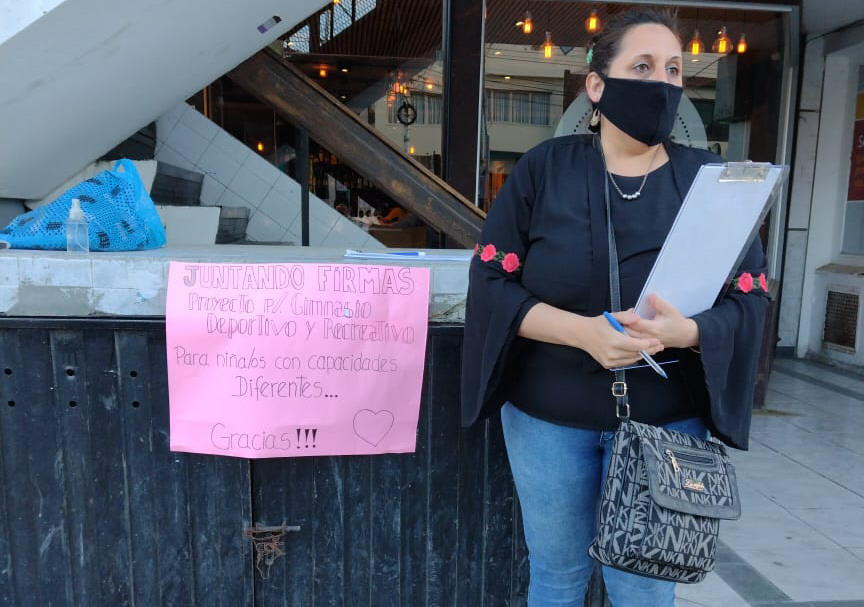 JUNTANDO FIRMAS
Proyecto p/ Gimnasio
Deportivo y Recreativo
Para niña/os con capacidades
Diferentes...
Gracias!!!